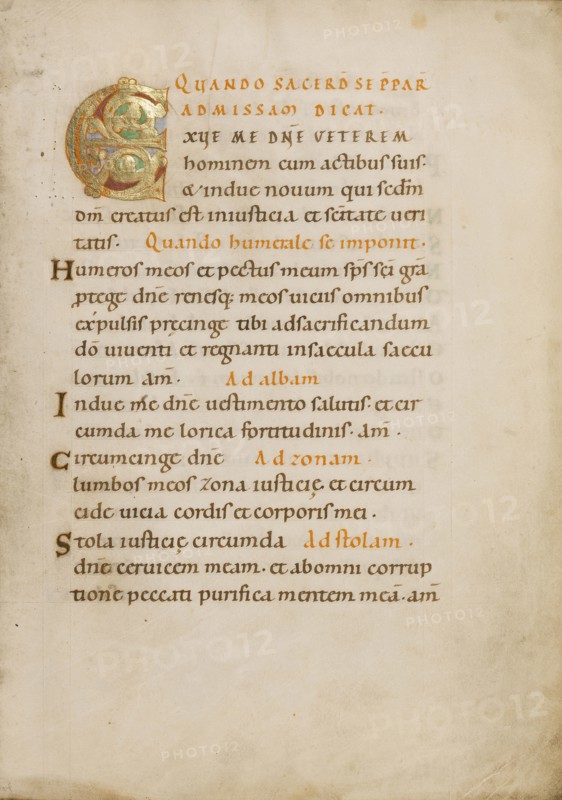 QUANDO SACERD̄ SE P̄PAR̄
AD MISSAM DICAT.
EXUE ME DN̄E VETEREM
hominem cum actibus suis.
& indue nouum qui sedm̄
dm̄ creatus est iniusticia et sc̄itate ueri
tatis. Quando humerale se imponit.
Humeros meos et pectus meum sp̄s sc̄i grā
ꝓtege dn̄e renesq; meos uiciis omnibus
expulsis precinge tibi adsacrificandum
dō uiuenti et regnanti insaecula saecu
lorum am̄. Ad albam
Indue me dn̄e uestimento salutis. et cir
cumda me lorica fortitudinis. am̄.
Circumcinge dn̄e Ad zonam.
lumbos meos zona iusticię et circum
cide uicia cordis et corporis mei.
Stola iusticię circumda Ad stolam.
dn̄e ceruicem meam. et abomni corrup
tione peccati purifica mentem meā. am̄